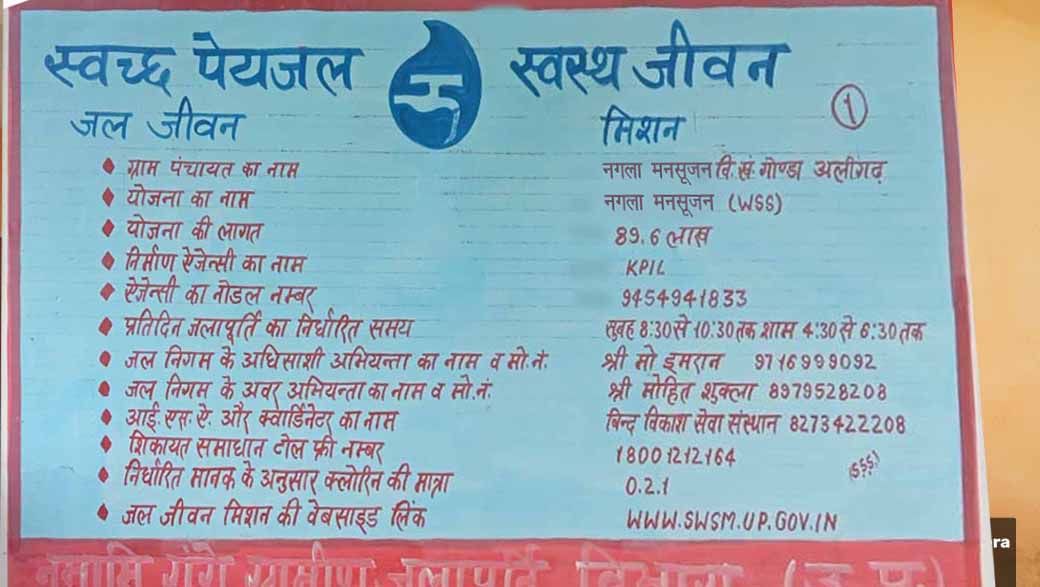 स्वच्छ पेयजल स्वस्थ जीवन
जल जीवन मिशन
①
ग्राम पंचायत का नाम नगला मनसूजन वि.खं. गोण्डा अलीगढ़
योजना का नाम नगला मनसूजन (WSS)
योजना की लागत 89.6 लाख
निर्माण ऐजेन्सी का नाम KPIL
ऐजेन्सी का नोडल नम्बर 9454941833
प्रतिदिन जलापूर्ति का निर्धारित समय सुबह 8:30 से 10:30 तक शाम 4:30 से 6:30 तक
जल निगम के अधिसाशी अभियन्ता का नाम व मो.नं. श्री मो इमरान 9716999092
जल निगम के अवर अभियन्ता का नाम व मो.नं. श्री मोहित शुक्ला 8979528208
आई.एस.ऐ. और क्वार्डिनेटर का नाम बिन्द विकाश सेवा संस्थान 8273422208
शिकायत समाधान टोल फ्री नम्बर 18001212164
निर्धारित मानक के अनुसार क्लोरिन की मात्रा 0.2.1
जल जीवन मिशन की वेबसाइड लिंक WWW.SWSM.UP.GOV.IN
नमामि गंगे ग्रामीण जलापूर्ति विभाग (उ.प्र.)